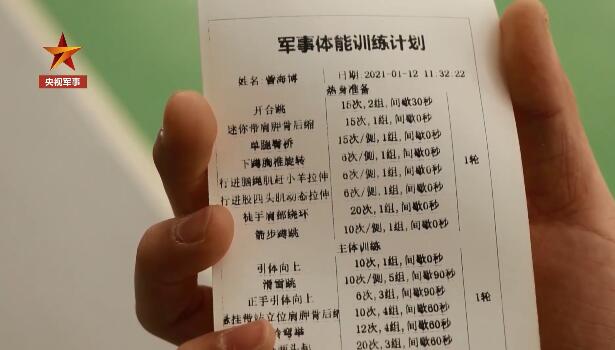 央视军事
军事体能训练计划
姓名:曹海博 日期:2021-01-12 11.32.22
热身准备
开合跳 15次,2组,间歇30秒
迷你带肩胛骨后缩 15次,1组,间歇0秒
单腿臀桥 15次/侧,1组,间歇0秒
下蹲胸椎旋转 6次/侧,1组,间歇0秒
行进腘绳肌赶小羊拉伸 6次/侧,1组,间歇0秒
行进股四头肌动态拉伸 6次/侧,1组,间歇0秒
徒手肩部绕环 20次,1组,间歇0秒
箭步蹲跳 10次/侧,1组,间歇0秒
1轮
主体训练
引体向上 10次,1组,间歇0秒
滑雪跳 10次/侧,5组,间歇90秒
正手引体向上 6次,3组,间歇90秒
悬挂带站立位肩胛骨后缩 10次,4组,间歇60秒
12次,4组,间歇60秒
20次,3组,间歇60秒
1轮